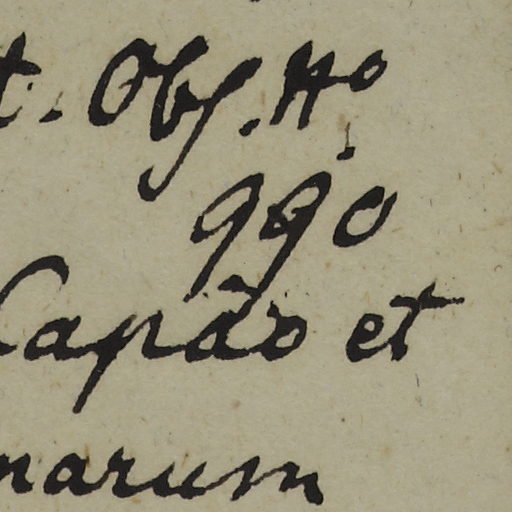 t. Obs. No
990
Capão et
narum